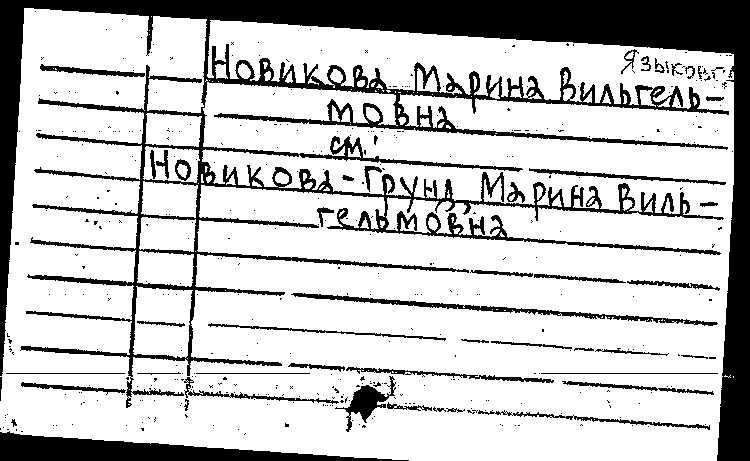 Новикова, Марина Вильгель-
мовна
см.:
Новикова-Грунд, Марина Виль-
гельмовна